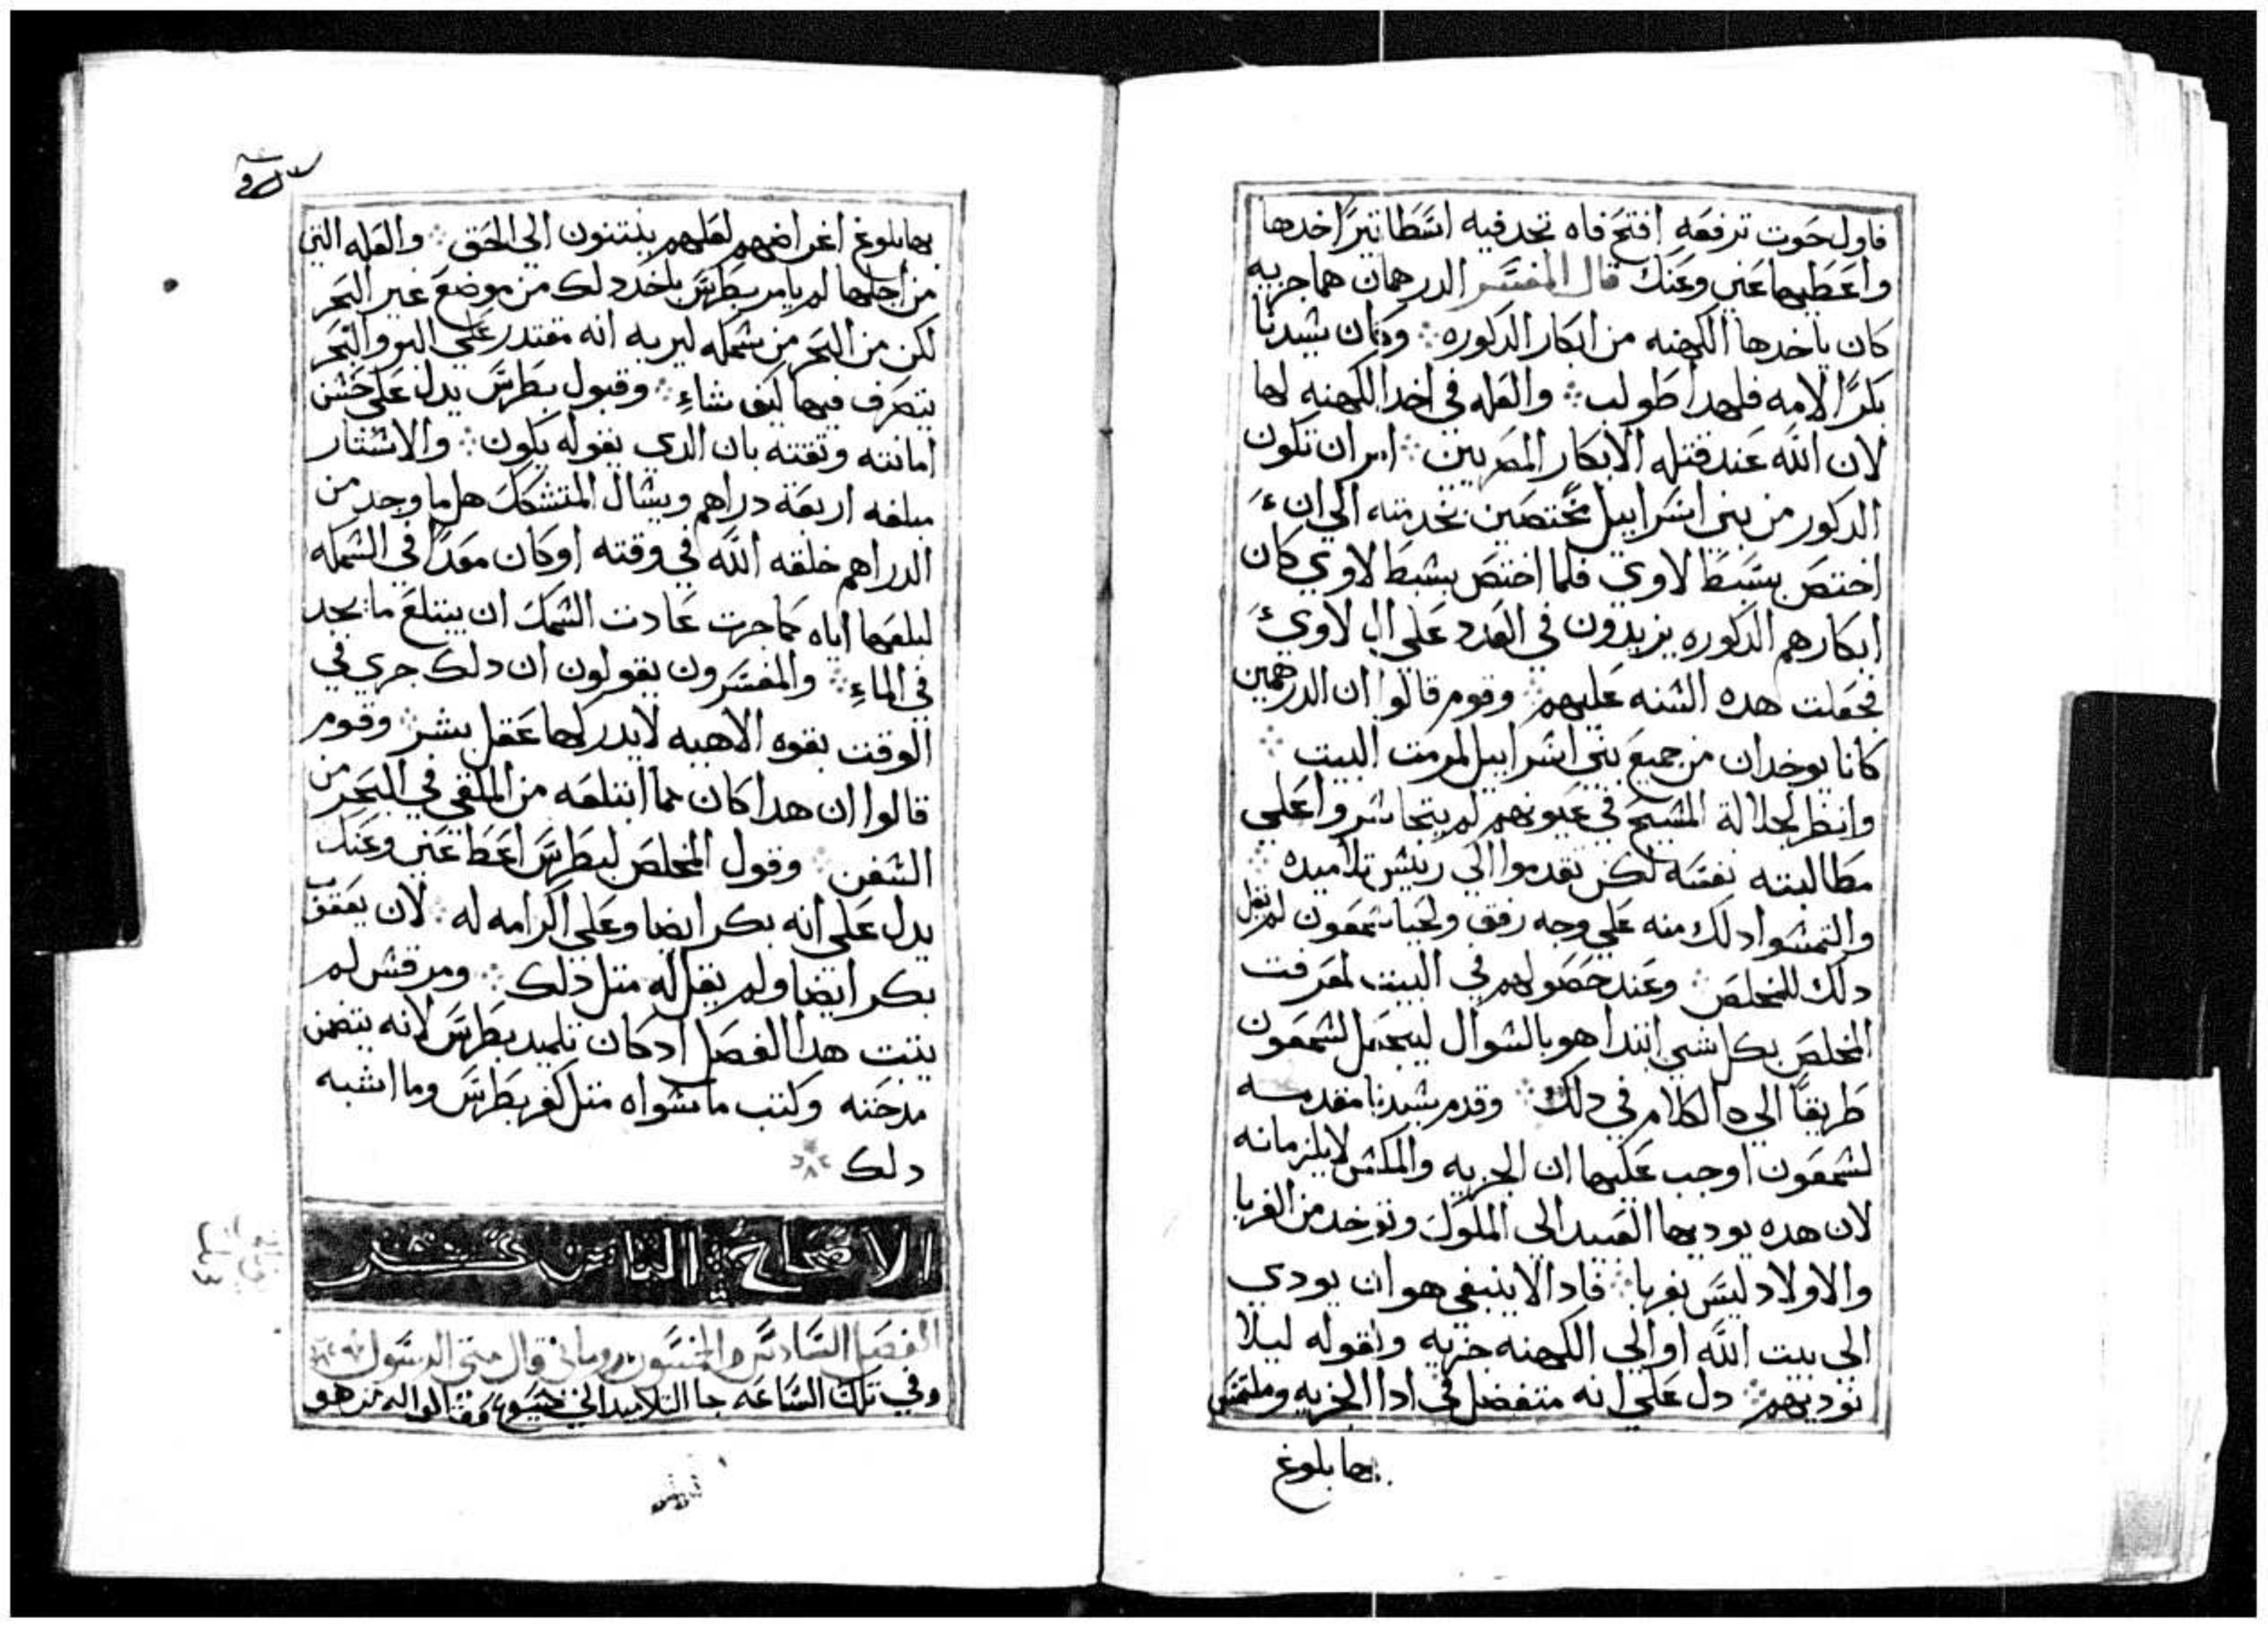 فاول حوت ترفعه افتح فاه تجد فيه اسطاتيرا خدها
واعطيهما عني وعنك قال المفسر الدرهمان هما جزيه
كان ياخدها الكهنه من ابكار الدكوره وكان سيدنا
بكرا لامه فلهدا طولب والعله في اخد الكهنه لها
لان الله عند قتله الابكار المصريين امر ان تكون
الدكور من بني اسراييل مختصين بخدمته الي ان
اختص بسبط لاوي فلما اختص بسبط لاوي كان
ابكارهم الدكوره يزيدون في العدد علي ال لاوي
فجعلت هده السنه عليهم وقوم قالوا ان الدرهمين
كانا يوخدان من جميع بني اسراييل لمرمت البيت
وانظر لجلالة المسيح في عيونهم لم يتجاسروا علي
مطالبته نفسه لكن تقدموا الي رييس تلاميده
والتمسوا دلك منه علي وجه رفق ولحيا سمعون لم يقل
دلك للمخلص وعند حصولهم في البيت لمعرفت
المخلص بكل شي ابتدا هو بالسوال ليجعل لسمعون
طريقا الي الكلام في دلك وقدم سيدنا مقدمه
لسمعون اوجب عليها ان الجزيه والمكس لا يلزمانه
لان هده يوديها العبيد الي الملوك وتوخد من الغربا
والاولاد ليس بغربا فادا لا ينبغي هو ان يودي
الي بيت الله او الي الكهنه جزيه وبقوله ليلا
نوديهم دل علي انه متفضل في ادا الجزيه وملتمس
بها بلوغ
بها بلوغ اغراضهم لعلهم ينتنون الي الحق والعله التي
من اجلها لم يامر بطرس باخد دلك من موضع غير البحر
لكن من البحر من سمكه ليريه انه مقتدر علي البر والبحر
يتصرف فيها كيف شاء وقبول بطرس يدل علي حسن
امانته وتقته بان الدي يقوله يكون والاستار
مبلغه اربعة دراهم ويسال المتشكك هل ما وجد من
الدراهم خلقه الله في وقته او كان معدا في السمكه
لبلعها اياه كما جرت عادت السمك ان يبتلع ما يجد
في الماء والمفسرون يقولون ان دلك جري في
الوقت بقوه الاهيه لا يدركها عقل بشر وقوم
قالوا ان هدا كان مما ابتلعه من الملقي في البحر من
السفن وقول المخلص لبطرس اعط عني وعنك
يدل علي انه بكر ايضا وعلي اكرامه له لان يعقوب
بكر ايضا ولم يقل له متل دلك ومرقس لم
يتبت هدا الفصل ادكان تلميد بطرس لانه يتضمن
مدحته وكتب ما سواه متل كفر بطرس وما اشبه
دلك
الاصحاح التامن عشر
الفصل السادس والخمسون روماني قال متي الرسول
وفي تلك الساعه جا التلاميد الي يسوع وقالوا له من هو